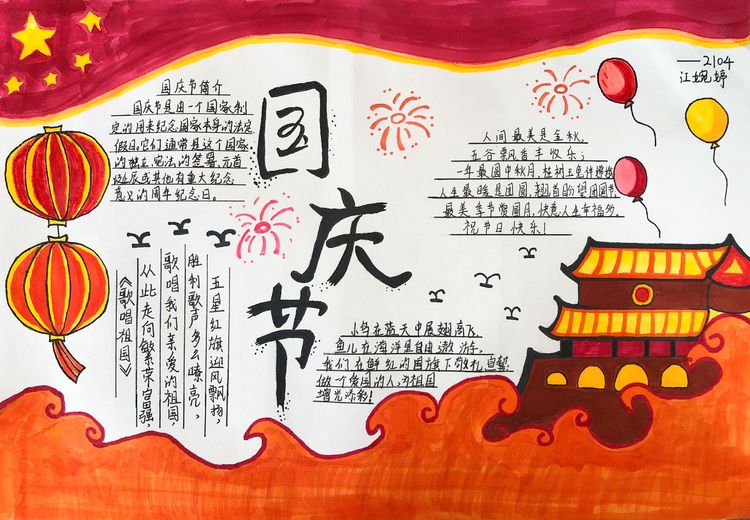 国庆节简介
国庆节是由一个国家制
定的用来纪念国家本身的法定
假日,它们通常是这个国家
的独立、宪法的签署、元首
诞辰或其他有重大纪念
意义的周年纪念日。
国庆节
——2104
江婉婷
人间最美是金秋,
五谷飘香丰收乐;
一年最圆中秋月,桂树玉兔伴嫦娥
人生最暖是团圆,翘首盼望团圆节
最美季节赏圆月,快意人生幸福多。
祝节日快乐!
五星红旗迎风飘扬,
胜利歌声多么嘹亮,
歌唱我们亲爱的祖国,
从此走向繁荣富强,
《歌唱祖国》
小鸟在蓝天中展翅高飞,
鱼儿在海洋里自由遨游,
我们在鲜红的国旗下敬礼,宣誓:
做一个爱国的人,为祖国
增光添彩!